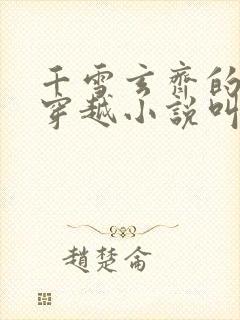 千雪玄齊的
穿越小說叫
趙楚侖